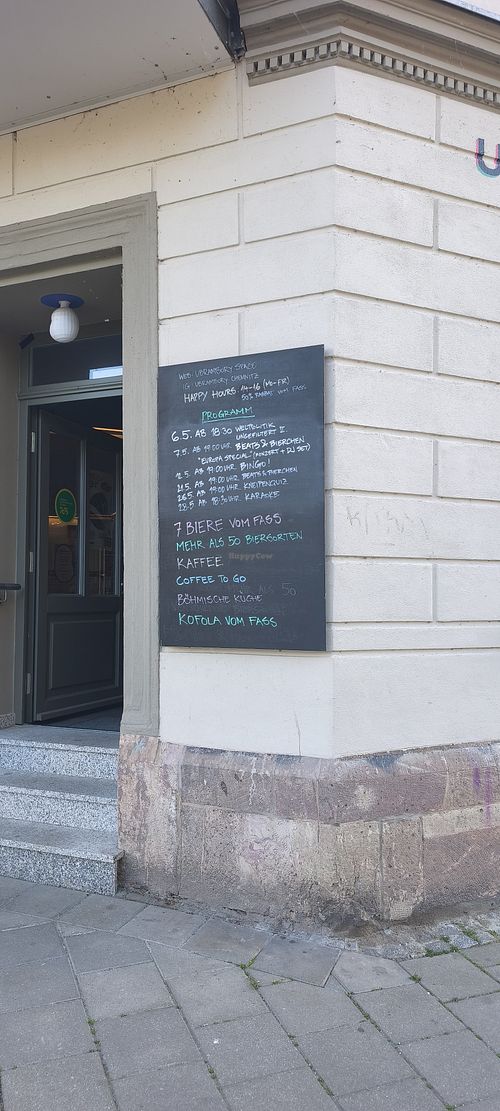 WEB: UBRAMBORY.SPACE
IG: UBRAMBORY CHEMNITZ
HAPPY HOURS 14-16 (MO-FR)
50% RABATT VOM FASS
PROGRAMM
6.5. AB 18:30 WELTPOLITIK
UNGEFILTERT II.
7.5. AB 19:00 UHR BEATS & BIERCHEN
"EUROPA SPECIAL" (KONZERT + DJ SET)
12.5. AB 19:00 UHR BINGO!
21.5. AB 19:00 UHR BEATS & BIERCHEN
26.5. AB 19:00 UHR KNEIPENQUIZ
28.5. AB 18:30 UHR KARAOKE
7 BIERE VOM FASS
MEHR ALS 50 BIERSORTEN
KAFFEE
COFFEE TO GO
BÖHMISCHE KÜCHE
KOFOLA VOM FASS
HappyCow
U